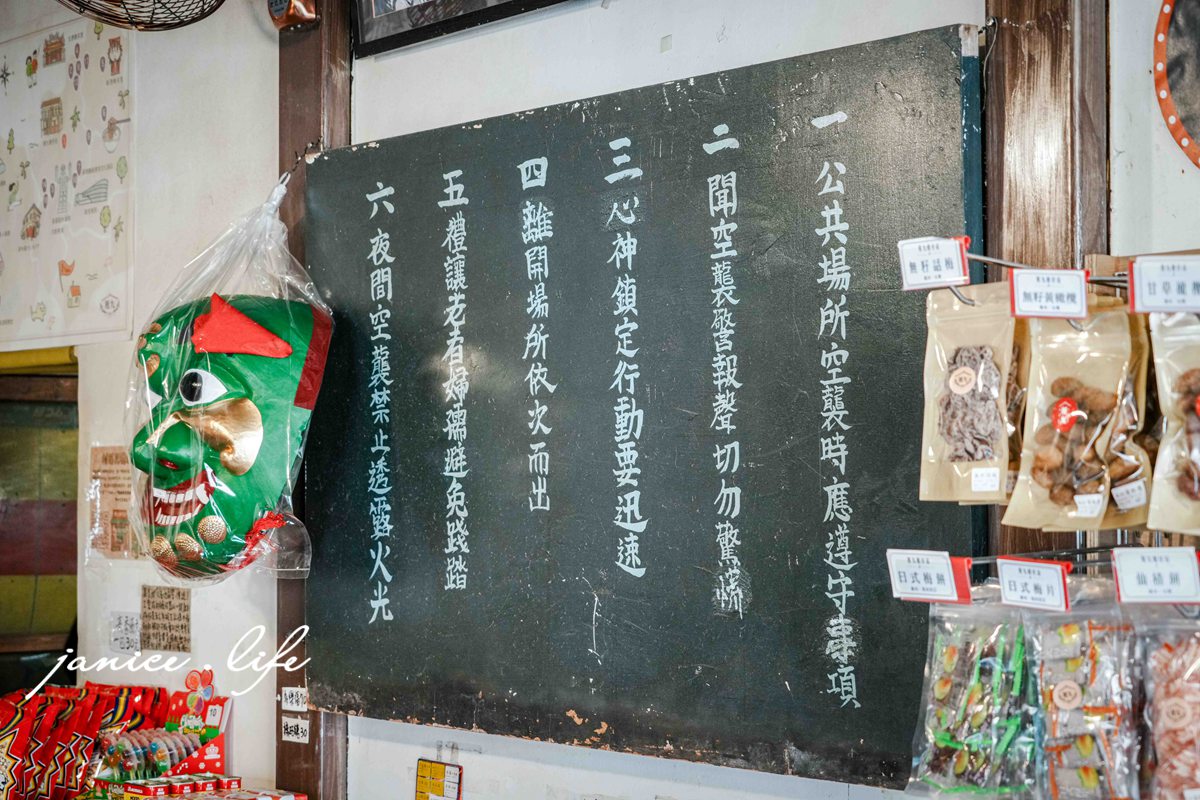 一 公共場所空襲時應遵守專項
二 聞空襲警報聲切勿驚慌
三 心神鎖定行動要迅速
四 離開場所依次而出
五 禮讓老者婦孺避免踐踏
六 夜間空襲禁止透露火光
無籽話梅
無籽黃橄欖
甘草橄欖
日式梅餅
日式梅片
仙楂餅
janice.life